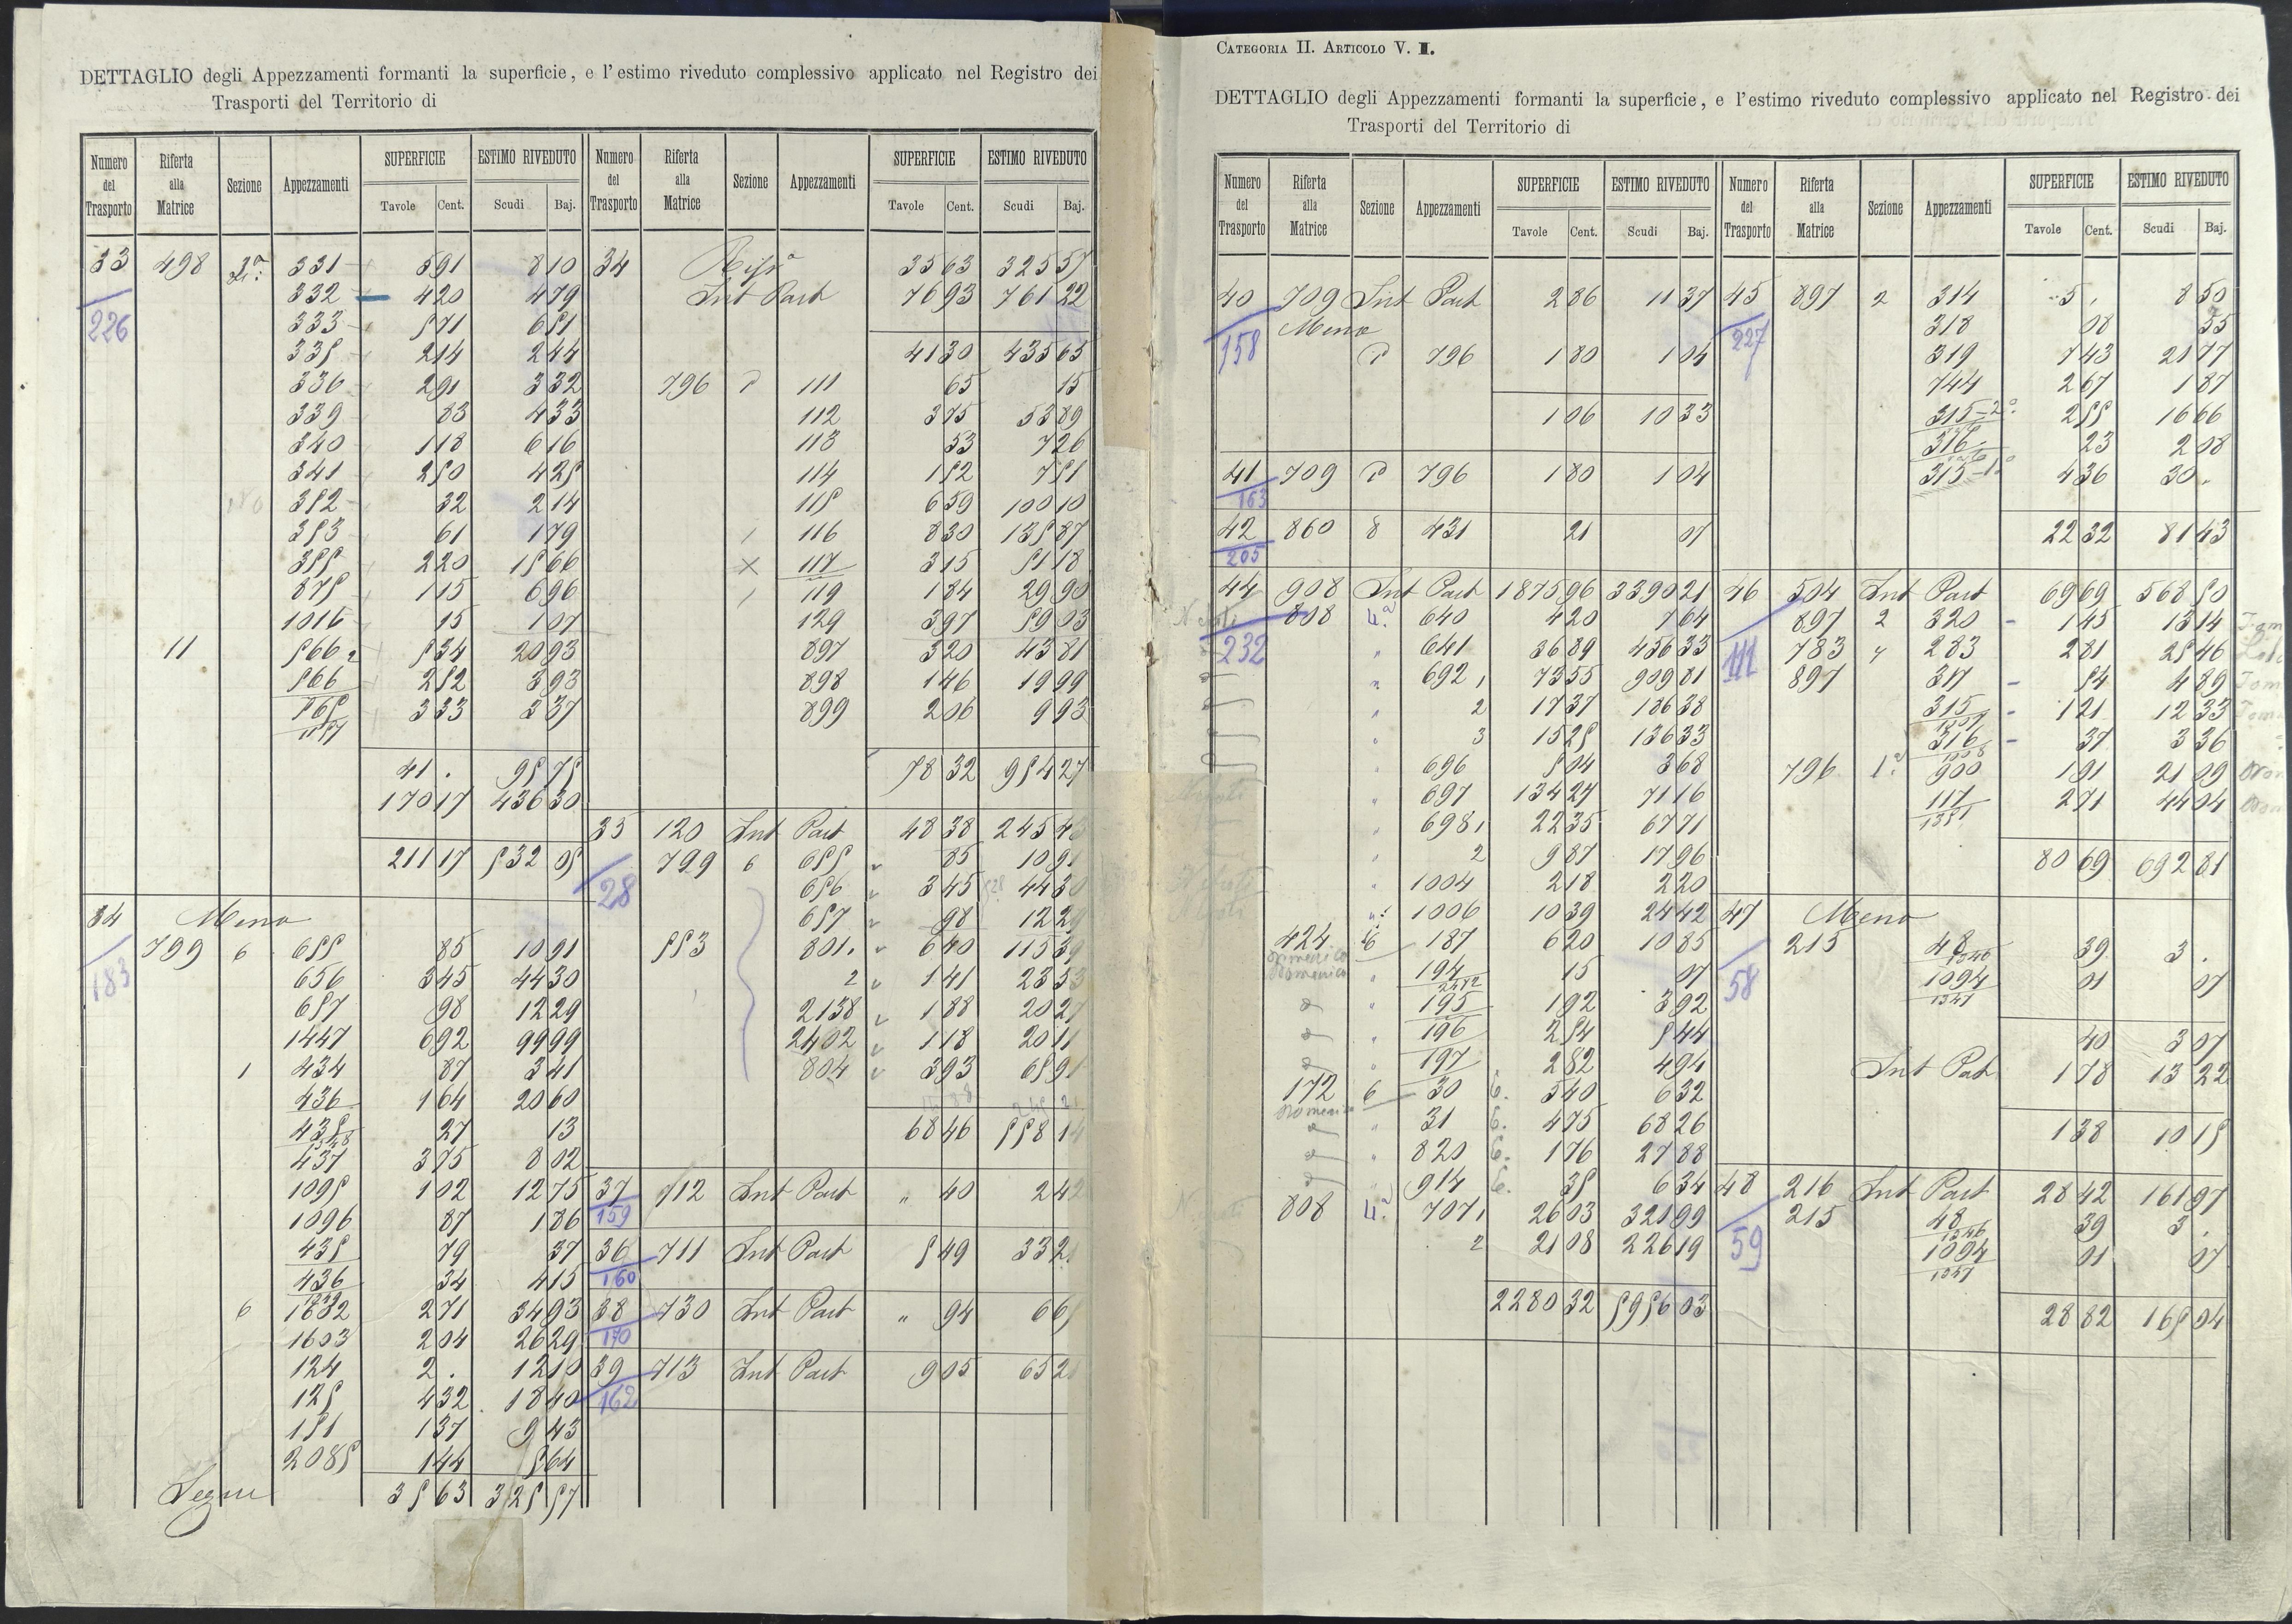 DETTAGLIO degli Appezzamenti formanti la superficie, e l'estimo riveduto complessivo applicato nel Registro dei
Trasporti del Territorio di
Numero del Trasporto Riferta alla Matrice Sezione Appezzamenti SUPERFICIE Tavole Cent. ESTIMO RIVEDUTO Scudi Baj.
33 498 2ª 331 5 91 8 10
332 4 20 4 79
226 333 5 71 6 51
335 2 14 2 44
336 2 91 3 32
339 83 4 33
340 1 18 6 16
341 2 50 4 25
352 32 2 14
353 61 1 79
355 2 20 15 66
875 1 15 6 96
1016 15 1 07
11 566 2 5 34 20 93
566 2 52 3 93
3 33 3 37
41 . 95 75
170 17 436 30
211 17 532 05
34 Meno
183 799 6 655 85 10 91
656 3 45 44 30
657 98 12 29
1447 6 92 99 99
1 434 87 3 41
436 1 64 20 60
435 27 13
437 3 75 8 02
1095 1 02 12 75
1096 87 1 86
435 79 37
436 34 4 15
6 1602 2 71 34 93
1603 2 04 26 29
124 2 . 12 10
125 4 32 18 40
151 1 37 9 43
2085 1 44 5 64
Segue 35 63 325 57
Numero del Trasporto Riferta alla Matrice Sezione Appezzamenti SUPERFICIE Tavole Cent. ESTIMO RIVEDUTO Scudi Baj.
34 35 63 325 57
Int Part 76 93 761 22
41 30 435 65
796 111 65 15
112 3 75 53 89
113 53 7 26
114 1 52 7 51
115 6 59 100 10
116 8 30 135 87
X 117 3 15 51 18
119 1 84 29 90
129 3 97 59 03
897 3 20 43 81
898 1 46 19 99
899 2 06 9 93
78 32 954 27
35 120 Int Part 48 38 245
28 799 6 655 85 10 9
656 3 45 44 30
657 98 12 29
553 801 6 40 115 39
2 1 41 23 53
2138 1 88 20 27
2402 1 18 20 11
804 3 93 65 91
68 46 558 14
37 712 Int Part " 40 2 42
159
36 711 Int Part 5 49 33 2
160
38 730 Int Part " 94 6 6
170
39 713 Int Part 9 05 65 2
162
CATEGORIA II. ARTICOLO V. I.
DETTAGLIO degli Appezzamenti formanti la superficie, e l'estimo riveduto complessivo applicato nel Registro dei
Trasporti del Territorio di
Numero del Trasporto Riferta alla Matrice Sezione Appezzamenti SUPERFICIE Tavole Cent. ESTIMO RIVEDUTO Scudi Baj.
40 709 Int Part 2 86 11 37
158 Meno
796 1 80 1 04
1 06 10 33
41 709 796 1 80 1 04
163
42 860 8 431 21 07
205
44 908 Int Part 1875 96 3390 21
808 4ª 640 4 20 7 64
232 " 641 36 89 456 33
" 692 1 73 55 909 81
" 2 17 37 186 38
" 3 15 25 136 33
" 696 5 04 3 68
" 697 134 27 71 16
" 698 1 22 35 67 71
" 2 9 87 17 96
" 1004 2 18 2 20
" 1006 10 39 24 42
424 6 187 6 20 10 85
Domenico " 194 15 07
" 195 1 92 3 92
" 196 2 54 5 44
" 197 2 82 4 94
172 6 30 6. 3 40 6 32
31 6. 4 75 68 26
820 6. 1 76 27 88
914 6. 35 6 34
808 4ª 707 1 26 03 321 99
2 21 08 226 19
2280 32 5956 03
Numero del Trasporto Riferta alla Matrice Sezione Appezzamenti SUPERFICIE Tavole Cent. ESTIMO RIVEDUTO Scudi Baj.
45 897 2 314 5 . 8 50
227 318 08 55
319 7 43 21 77
744 2 67 1 87
315-2º 2 55 16 66
316 23 2 08
315-1º 4 36 30 .
22 32 81 43
46 504 Int Part 69 69 568 50
897 2 320 1 45 13 14
111 783 4 283 2 81 25 46
897 317 54 4 89
315 1 21 12 33
316 37 3 36
796 1ª 900 1 91 21 09
117 2 71 44 04
80 69 692 81
47 Meno
58 215 48 39 3 .
1094 01 07
40 3 07
Int Part 1 78 13 22
1 38 10 15
48 216 Int Part 28 42 161 97
59 215 48 39 3 .
1094 01 07
28 82 165 04